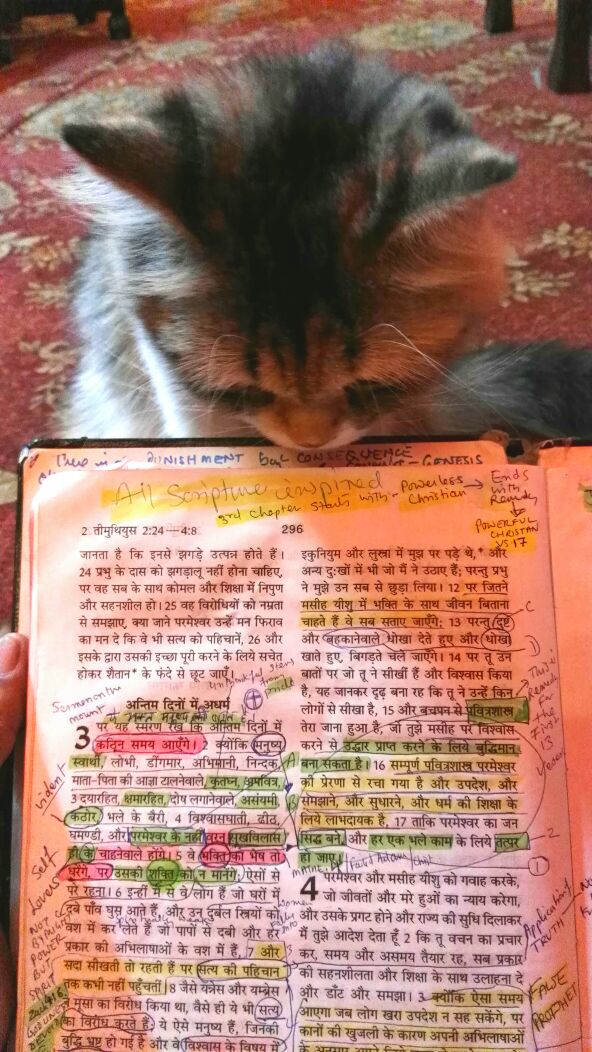 There is PUNISHMENT but CONSEQUENCE
- GENESIS
All Scripture inspired
3rd Chapter starts with - Powerless Christian → Ends with Remedy
POWERFUL CHRISTIAN VS 17
2 तीमुथियुस 2:24—4:8
296
जानता है कि इनसे झगड़े उत्पन्न होते हैं।
24 प्रभु के दास को झगड़ालू नहीं होना चाहिए,
पर वह सब के साथ कोमल और शिक्षा में निपुण
और सहनशील हो। 25 वह विरोधियों को नम्रता
से समझाए, क्या जाने परमेश्वर उन्हें मन फिराव
का मन दे कि वे भी सत्य को पहिचानें, 26 और
इसके द्वारा उसकी इच्छा पूरी करने के लिये सचेत
होकर शैतान* के फंदे से छूट जाएँ।
Sermon on the mount
अन्तिम दिनों में अधर्म
3 पर यह स्मरण रख कि अन्तिम दिनों में
कठिन समय आएँगे। 2 क्योंकि मनुष्य
स्वार्थी, लोभी, डींगमार, अभिमानी, निन्दक,
माता-पिता की आज्ञा टालनेवाले, कृतघ्न, अपवित्र,
3 दयारहित, क्षमारहित, दोष लगानेवाले, असंयमी,
कठोर, भले के बैरी, 4 विश्वासघाती, ढीठ,
घमण्डी, और परमेश्वर के नहीं वरन् सुखविलास
ही के चाहनेवाले होंगे। 5 वे भक्ति का भेष तो
धरेंगे, पर उसकी शक्ति को न मानेंगे; ऐसों से
परे रहना। 6 इन्हीं में से वे लोग हैं जो घरों में
दबे पाँव घुस आते हैं, और उन दुर्बल स्त्रियों को
वश में कर लेते हैं जो पापों से दबी और हर
प्रकार की अभिलाषाओं के वश में हैं, 7 और
सदा सीखती तो रहती हैं पर सत्य की पहिचान
तक कभी नहीं पहुँचतीं। 8 जैसे यन्नेस और यम्ब्रेस
ने मूसा का विरोध किया था, वैसे ही ये भी सत्य
का विरोध करते हैं; ये ऐसे मनुष्य हैं, जिनकी
बुद्धि भ्रष्ट हो गई है और वे विश्वास के विषय में
Self Lovers
इकुनियुम और लुस्त्रा में मुझ पर पड़े थे,* और
अन्य दुःखों में भी जो मैं ने उठाए हैं; परन्तु प्रभु
ने मुझे उन सब से छुड़ा लिया। 12 पर जितने
मसीह यीशु में भक्ति के साथ जीवन बिताना
चाहते हैं वे सब सताए जाएँगे; 13 परन्तु दुष्ट
और बहकानेवाले धोखा देते हुए और धोखा
खाते हुए, बिगड़ते चले जाएँगे। 14 पर तू उन
बातों पर जो तू ने सीखीं हैं और विश्वास किया
है, यह जानकर दृढ़ बना रह कि तू ने उन्हें किन
लोगों से सीखा है, 15 और बचपन से पवित्रशास्त्र
तेरा जाना हुआ है, जो तुझे मसीह पर विश्वास
करने से उद्धार प्राप्त करने के लिये बुद्धिमान
बना सकता है। 16 सम्पूर्ण पवित्रशास्त्र परमेश्वर
की प्रेरणा से रचा गया है और उपदेश, और
समझाने, और सुधारने, और धर्म की शिक्षा के
लिये लाभदायक है, 17 ताकि परमेश्वर का जन
सिद्ध बने, और हर एक भले काम के लिये तत्पर
हो जाए।
4 परमेश्वर और मसीह यीशु को गवाह करके,
जो जीवतों और मरे हुओं का न्याय करेगा,
और उसके प्रगट होने और राज्य की सुधि दिलाकर
मैं तुझे आदेश देता हूँ 2 कि तू वचन का प्रचार
कर, समय और असमय तैयार रह, सब प्रकार
की सहनशीलता और शिक्षा के साथ उलाहना दे
और डाँट और समझा। 3 क्योंकि ऐसा समय
आएगा जब लोग खरा उपदेश न सह सकेंगे, पर
कानों की खुजली के कारण अपनी अभिलाषाओं
This is Remedy for the first 13 verses
Application TRUTH
FALSE PROPHET